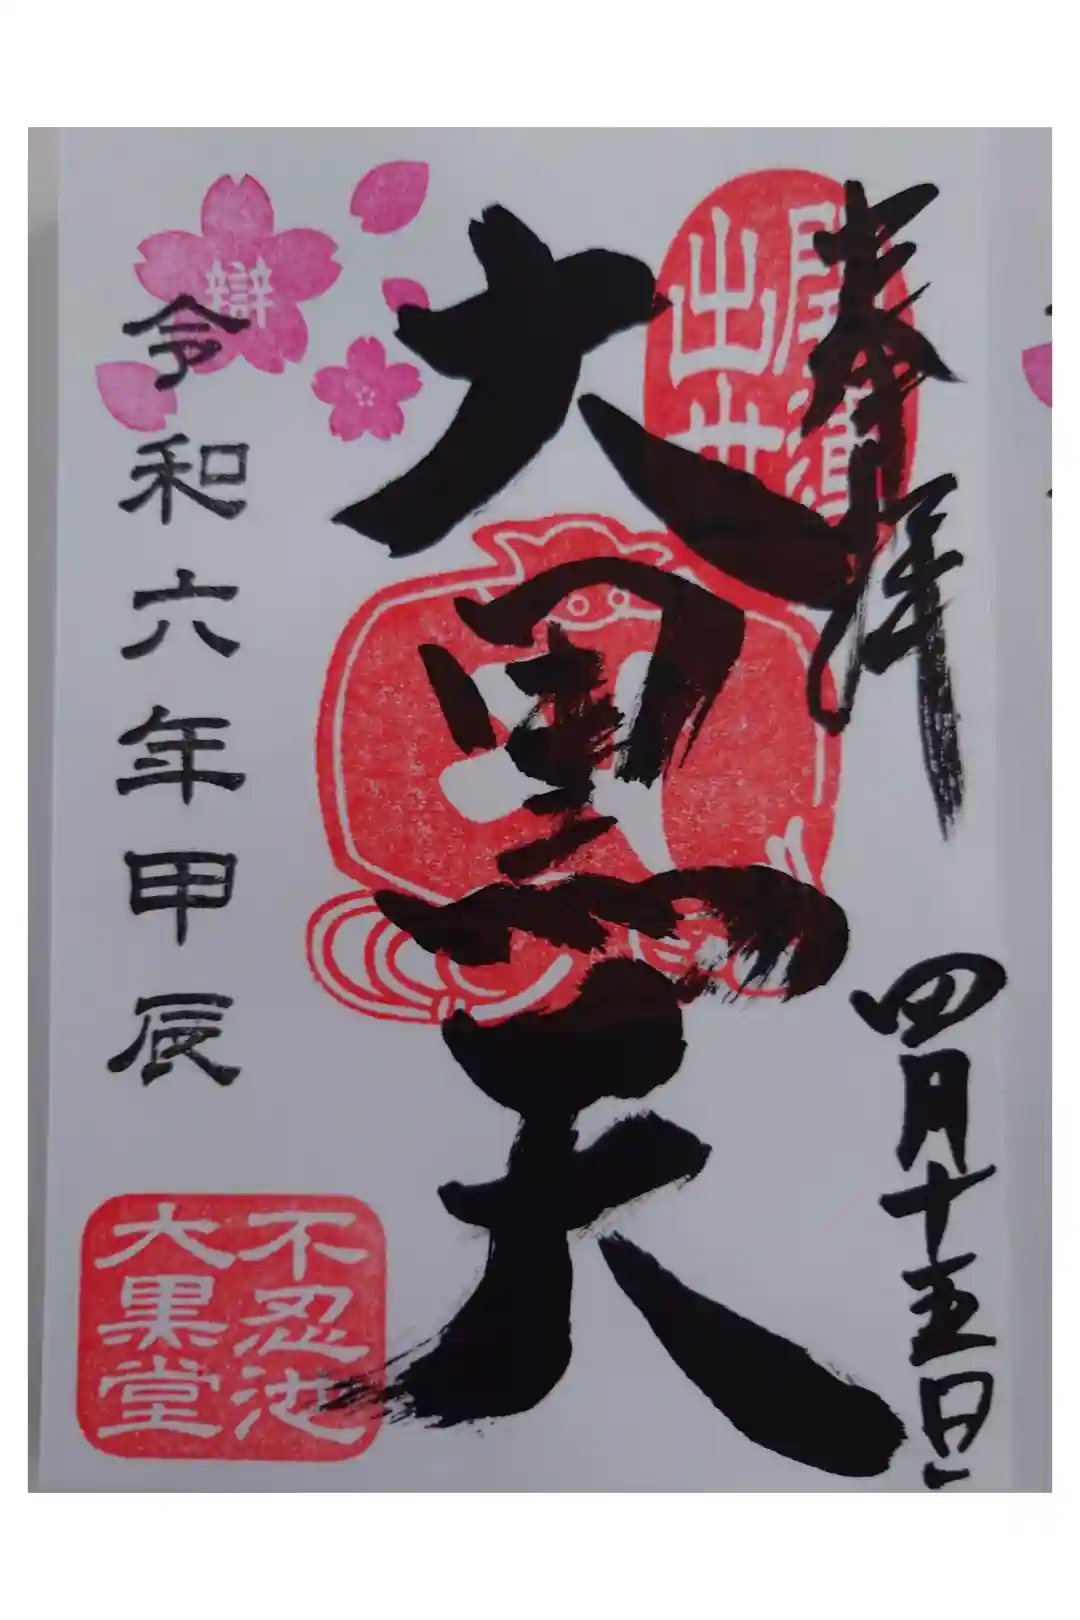 奉拝
四月十五日
大黒天
令和六年甲辰
辯
出世
不忍池
大黒堂